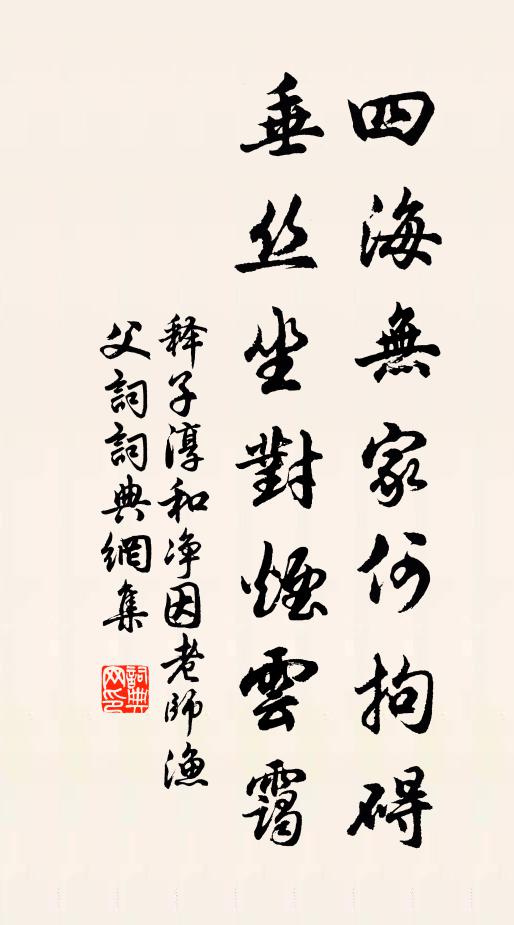 四海無家何拘碍
垂丝坐對煙雲靄
释子淳和净因老師漁
父詞詞典網集
詞典
网印